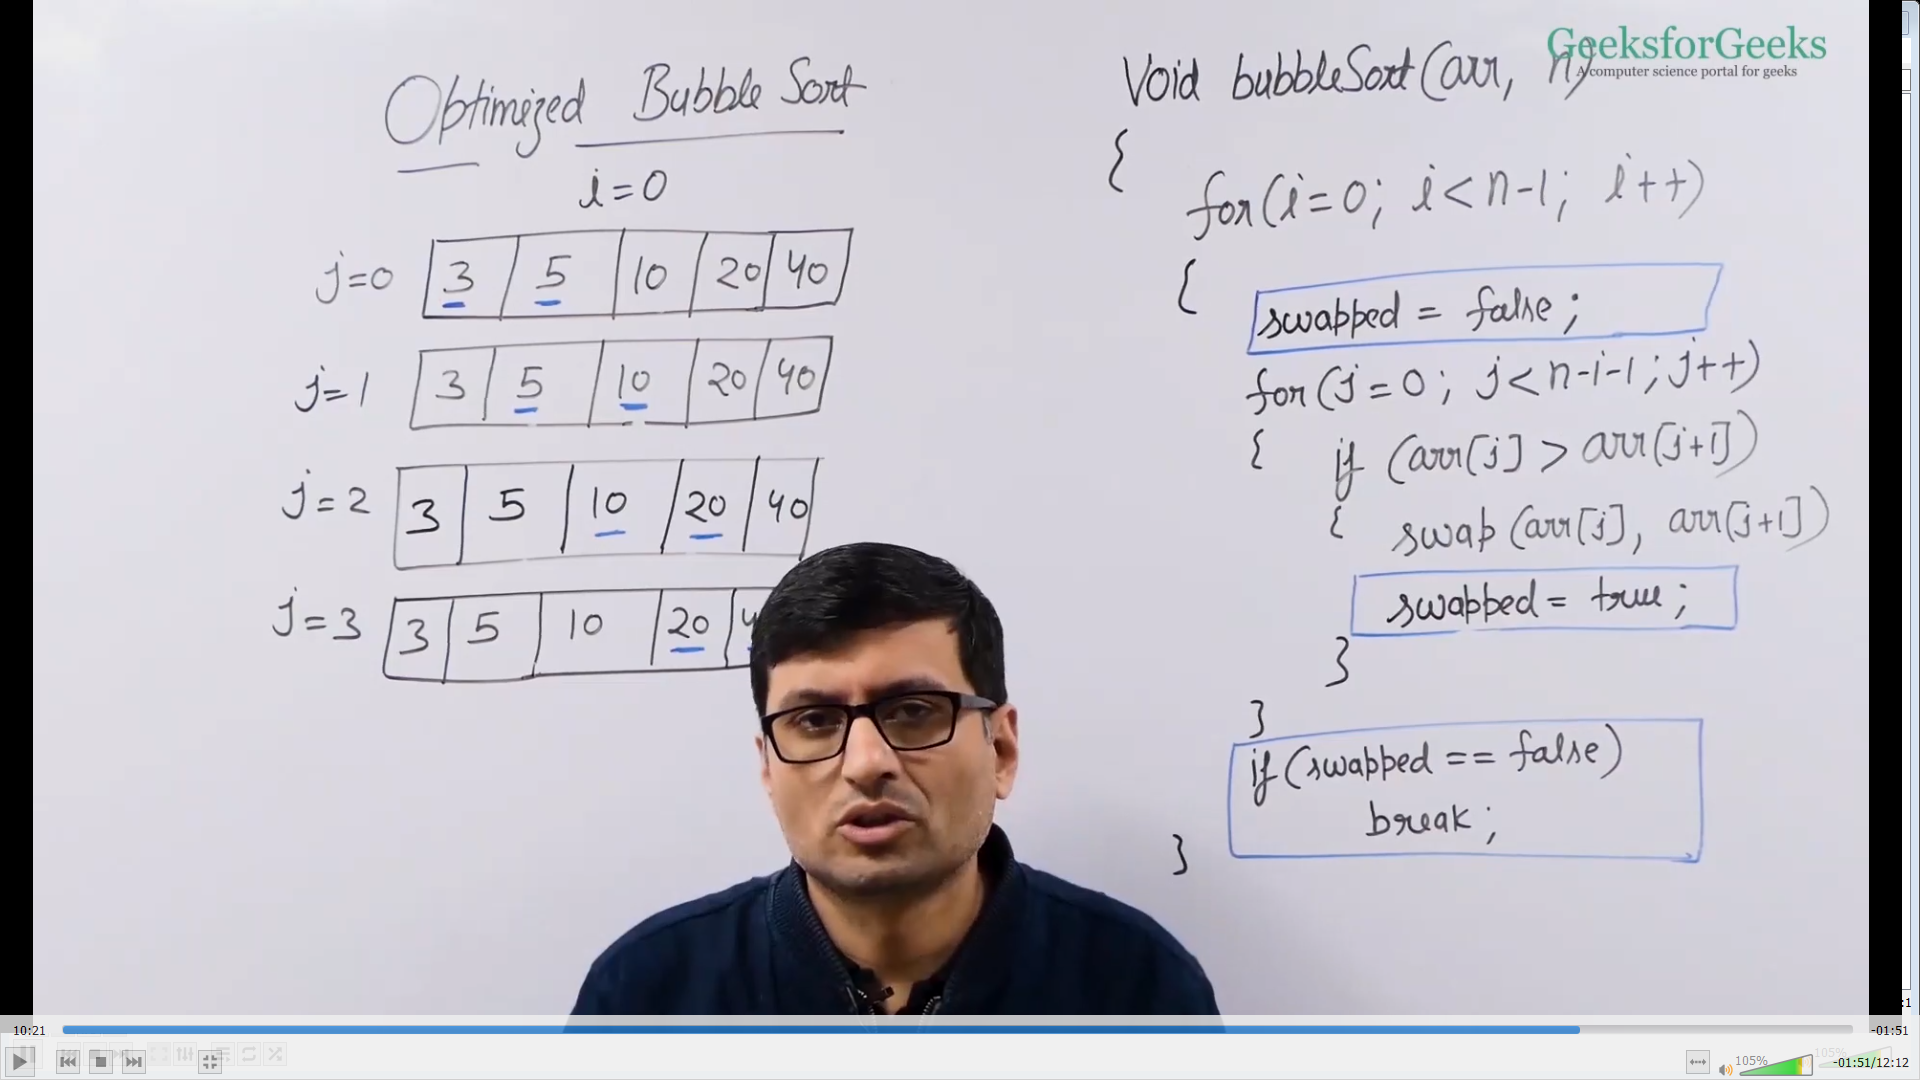 GeeksforGeeks
A computer science portal for geeks
Optimized Bubble Sort
i=0
j=0 3 5 10 20 40
j=1 3 5 10 20 40
j=2 3 5 10 20 40
j=3 3 5 10 20
Void bubbleSort(arr, n)
{
for(i=0; i<n-1; i++)
{
swapped = false;
for(j=0; j<n-i-1; j++)
{ if (arr[j] > arr[j+1])
{ swap(arr[j], arr[j+1])
swapped = true;
}
}
if(swapped == false)
break;
}
10:21
-01:51
105%
-01:51/12:12